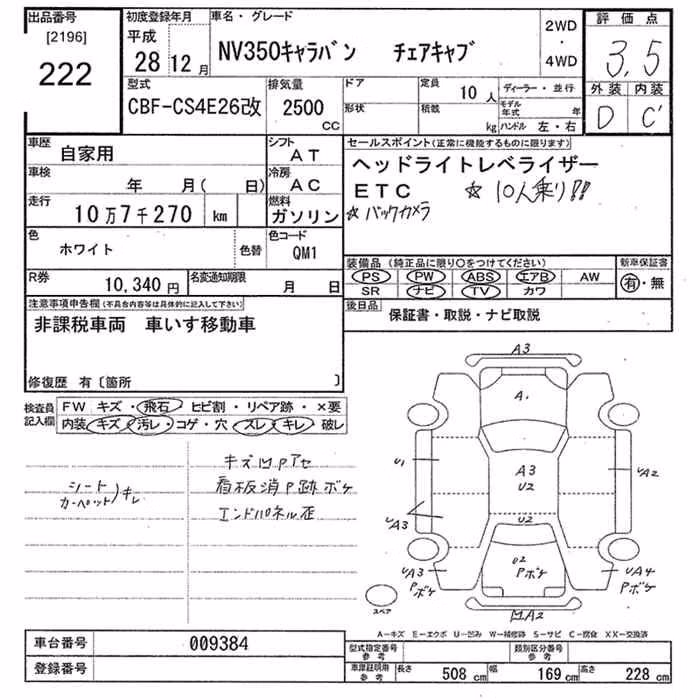 出品番号
[2196]
222
初度登録年月
平成
28 12 月
車名・グレード
NV350キャラバン チェアキャブ
2WD
・
4WD
評価点
3.5
外装 内装
D C'
型式
CBF-CS4E26改
排気量
2500
cc
ドア
形状
定員
10 人
積載
kg
ディーラー・並行
モデル年式 年
ハンドル 左・右
車歴
自家用
シフト
AT
車検
年 月( 日)
冷房
AC
走行
10万7千270 km
燃料
ガソリン
色
ホワイト
色替
色コード
QM1
R券
10,340 円
名変通知期限
月 日
セールスポイント(正常に機能するものに限ります)
ヘッドライトレベライザー
ETC ☆ 10人乗り!!
☆バックカメラ
装備品(純正品に限り○をつけてください)
PS PW ABS エアB AW
SR ナビ TV カワ
新車保証書
有・無
後日品
保証書・取説・ナビ取説
注意事項申告欄(不具合内容等は具体的に記入して下さい)
非課税車両 車いす移動車
修復歴 有〔箇所 〕
検査員
記入欄
FW キズ・飛石・ヒビ割・リペア跡・×要
内装 キズ・汚レ・コゲ・穴 スレ・キレ・破レ
シート
カーペット)キレ
キズ凹Pアセ
看板消P跡ボケ
エンドパネル歪
A3
A1
U1
A3
U2
UA2
UA3
U2
UA3
Pボケ
U2
Pボケ
UA4
Pボケ
スペア
凹A2
A-キズ E-エクボ U-凹み W-補修跡 S-サビ C-腐食 XX-交換済
車台番号
009384
登録番号
型式指定番号
参考
類別区分番号
参考
車庫証明用
参考
長さ 508 cm 幅 169 cm 高さ 228 cm